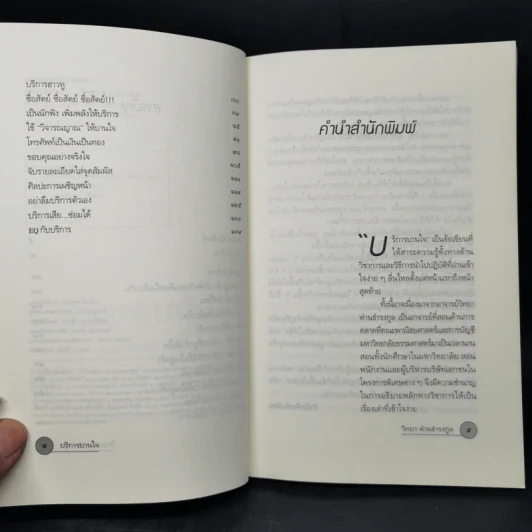 บริการฮาวทู
ซื่อสัตย์ ซื่อสัตย์ ซื่อสัตย์!!!
เป็นนักฟัง เพิ่มพลังให้บริการ
ใช้ "วิจารณญาณ" ให้บานใจ
โทรศัพท์เป็นเงินเป็นทอง
ขอบคุณอย่างจริงใจ
จับรายละเอียดใส่จุดสัมผัส
ศิลปะการเผชิญหน้า
อย่าลืมบริการตัวเอง
บริการเสีย...ซ่อมได้
EQ กับบริการ
บริการบานใจ
คำนำสำนักพิมพ์
"บริการบานใจ" เป็นข้อเขียนที่
ให้สาระความรู้ทั้งทางด้าน
วิชาการและวิธีการนำไปปฏิบัติที่อ่านเข้า
ใจง่าย ๆ ลื่นไหลตั้งแต่หน้าแรกยันหน้า
สุดท้าย
ทั้งนี้อาจเนื่องมาจากอาจารย์วิทยา
ด่านธำรงกูล เป็นอาจารย์ที่สอนด้านการ
ตลาดที่คณะพาณิชยศาสตร์และการบัญชี
มหาวิทยาลัยธรรมศาสตร์มาเป็นเวลานาน
สอนทั้งนักศึกษาในมหาวิทยาลัย สอน
พนักงานและผู้บริหารบริษัทเอกชนใน
โครงการพิเศษต่าง ๆ จึงมีความชำนาญ
ในการอธิบายหลักทางวิชาการให้เป็น
เรื่องเล่าที่เข้าใจง่าย
วิทยา ด่านธำรงกูล